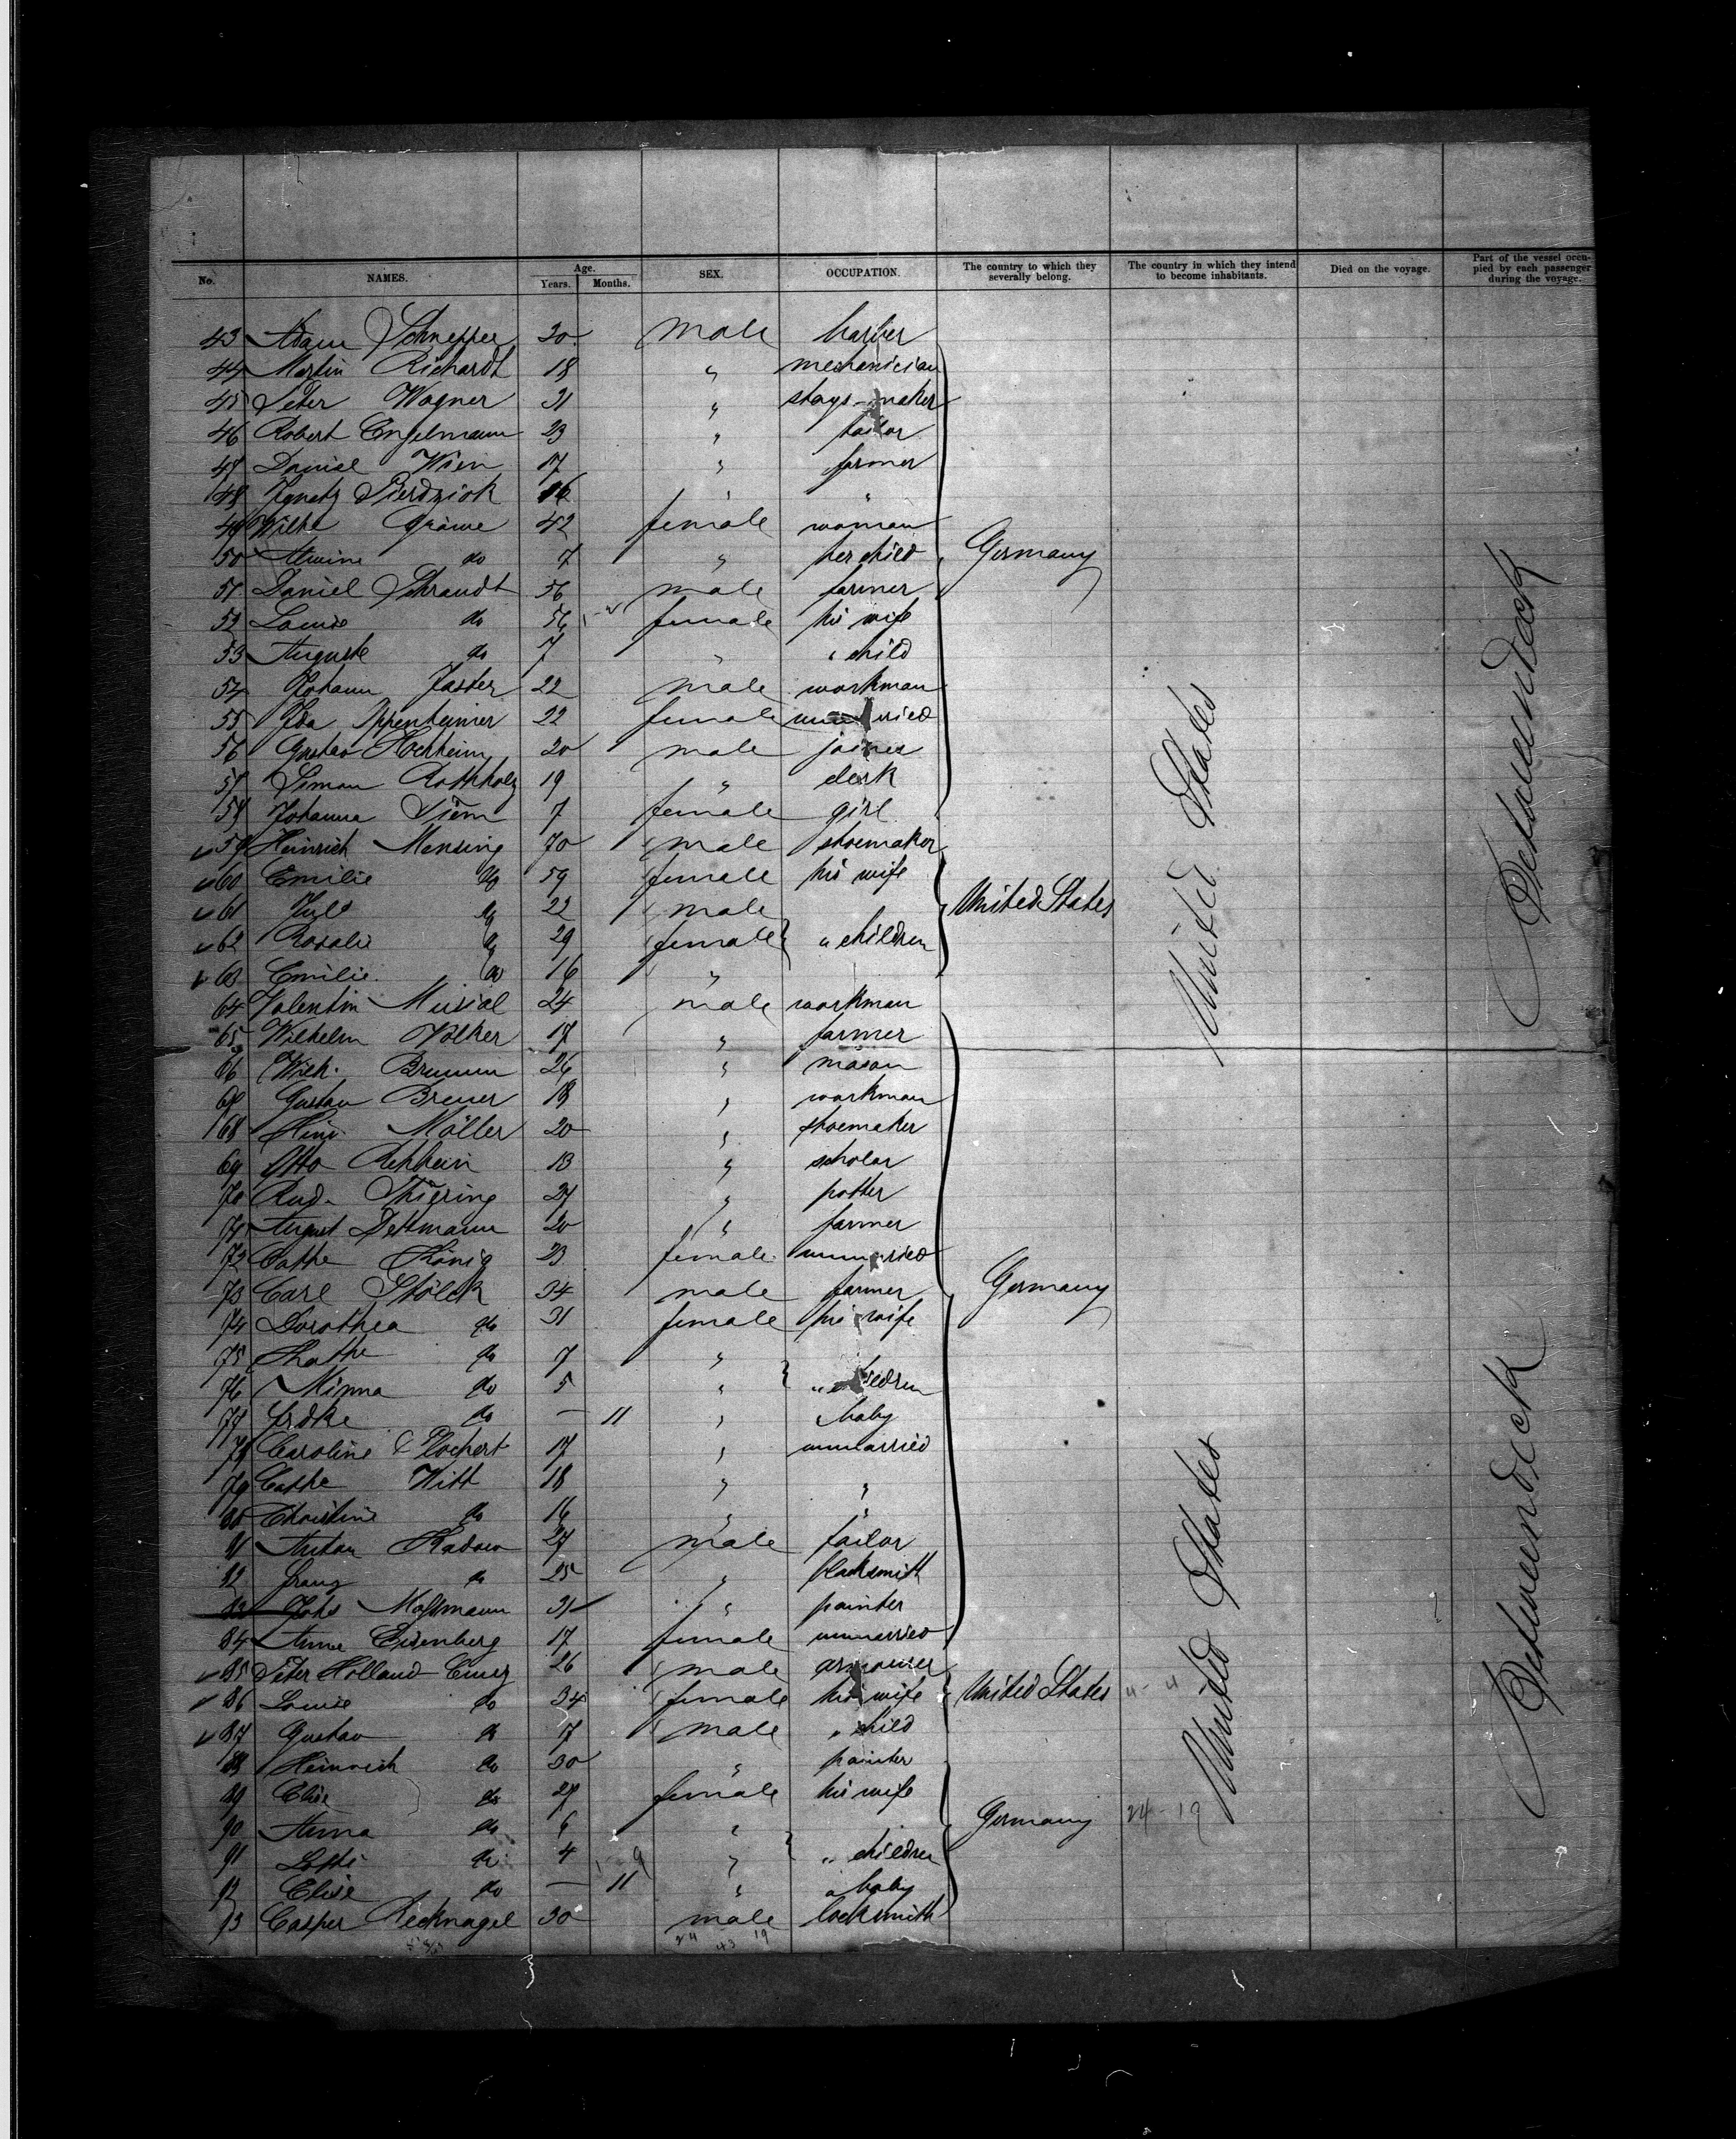 No. NAMES. Age. Years. Months. SEX. OCCUPATION. The country to which they severally belong. The country in which they intend to become inhabitants. Died on the voyage. Part of the vessel occupied by each passenger during the voyage.
43 Adam Schnepper 20 male barber
44 Martin Richardt 18 " mechanician
45 Peter Wagner 31 " stays-maker
46 Robert Engelmann 23 " tailor
47 Daniel Wien 17 " farmer
48 Ignatz Pierdziok 16 " "
49 Wilhe Gräwe 42 female woman
50 Alwine do 7 " her child Germany
51 Daniel Schrandt 56 male farmer
52 Louise do 56 female his wife
53 Auguste do 7 " " child
54 Johann Jaster 22 male workman
55 Ida Oppenheimer 22 female unmarried
56 Gustav Hochheim 20 male joiner
57 Simon Rothholz 19 " clerk
58 Johanna Siem 7 female girl
59 Heinrich Mensing 70 male shoemaker
60 Emilie do 59 female his wife
61 Jul. do 22 male United States
62 Rosalie do 29 female " children
63 Emilie do 16 "
64 Valentin Musial 24 male workman
65 Wilhelm Völker 17 " farmer
66 Wilh. Brumm 26 " mason
67 Gustav Breuer 18 " workman
68 Hinr. Möller 20 " shoemaker
69 Otto Rehbein 13 " scholar
70 Rud. Thiering 27 " potter
71 August Dettmann 20 " farmer
72 Cathe König 23 female unmarried
73 Carl Stölck 34 male farmer Germany
74 Dorothea do 31 female his wife
75 Cathe do 7 "
76 Minna do 5 " " children
77 do — 11 " " baby
78 Caroline Plochert 17 " unmarried
79 Cathe Witt 18 " "
80 Christine do 16 " "
81 Anton Kadow 27 male tailor
82 Franz do 25 " blacksmith
83 Johs Mossmann 31 " painter
84 Anna Eisenberg 17 female unmarried
85 Peter Holland Cunz 26 male armourer
86 Louise do 34 female his wife United States
87 Gustav do 17 male " child
88 Heinrich do 30 " painter
89 Elise do 29 female his wife
90 Anna do 6 " Germany 24-19
91 Lotti do 4 " " children
92 Elise do — 11 " " baby
93 Casper Recknagel 30 male locksmith
24 43 19
United States
United States
Betweendeck
Betweendeck